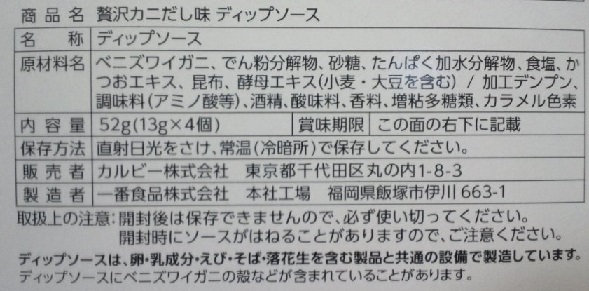 商品名 贅沢カニだし味 ディップソース
名称 ディップソース
原材料名 ベニズワイガニ、でん粉分解物、砂糖、たんぱく加水分解物、食塩、か
つおエキス、昆布、酵母エキス(小麦・大豆を含む) / 加工デンプン、
調味料(アミノ酸等)、酒精、酸味料、香料、増粘多糖類、カラメル色素
内容量 52g(13g×4個) 賞味期限 この面の右下に記載
保存方法 直射日光をさけ、常温(冷暗所)で保存してください。
販売者 カルビー株式会社 東京都千代田区丸の内1-8-3
製造者 一番食品株式会社 本社工場 福岡県飯塚市伊川 663-1
取扱上の注意:開封後は保存できませんので、必ず使い切ってください。
開封時にソースがはねることがありますので、ご注意ください。
ディップソースは、卵・乳成分・えび・そば・落花生を含む製品と共通の設備で製造しています。
ディップソースにベニズワイガニの殻などが含まれていることがあります。